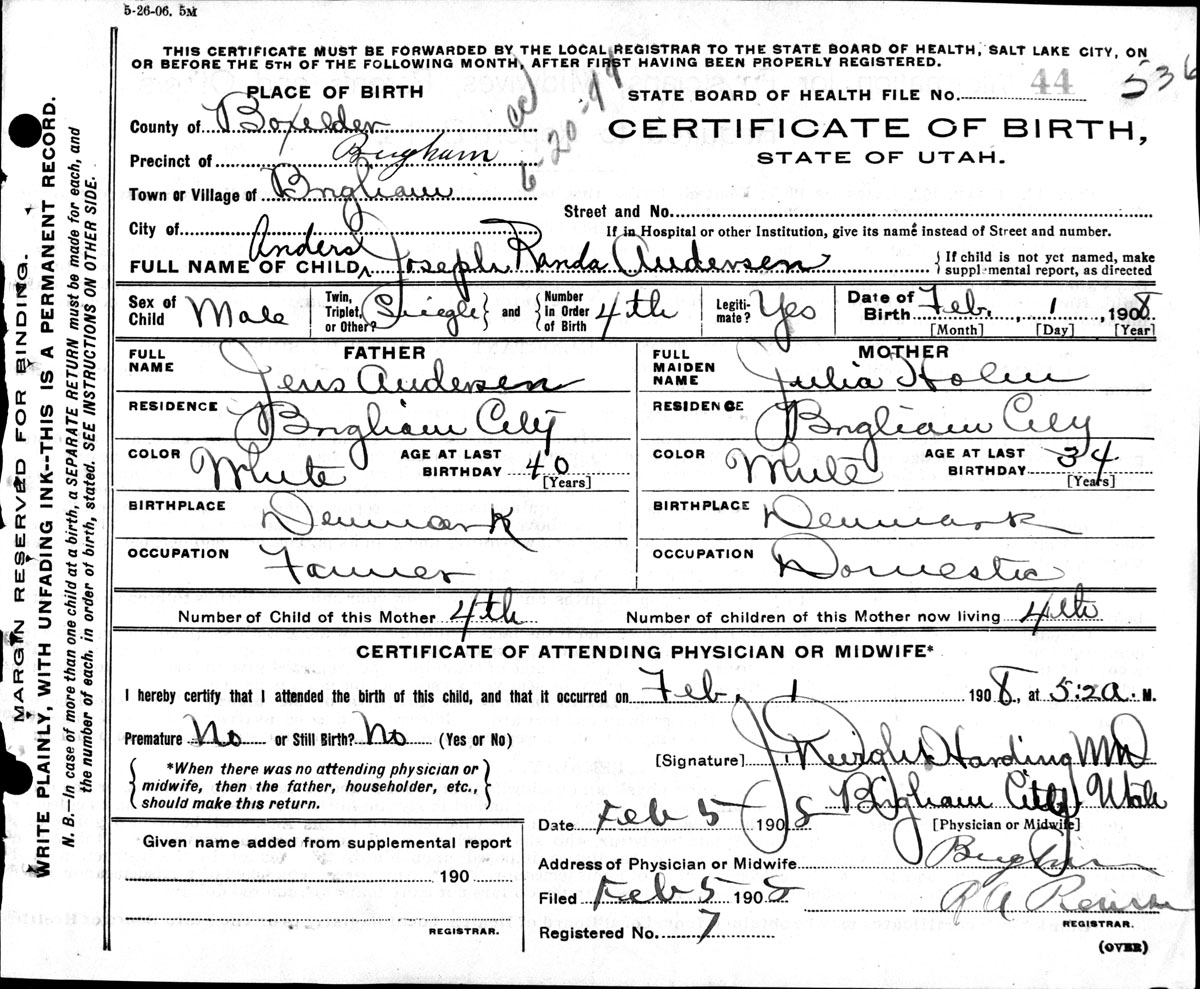 5-26-06. 5M
THIS CERTIFICATE MUST BE FORWARDED BY THE LOCAL REGISTRAR TO THE STATE BOARD OF HEALTH, SALT LAKE CITY, ON
OR BEFORE THE 5TH OF THE FOLLOWING MONTH, AFTER FIRST HAVING BEEN PROPERLY REGISTERED.
PLACE OF BIRTH
STATE BOARD OF HEALTH FILE No. 44 536
County of Boxelder
6-20-44
CERTIFICATE OF BIRTH,
STATE OF UTAH.
Precinct of Brigham
Town or Village of Brigham
Street and No.
City of
If in Hospital or other Institution, give its name instead of Street and number.
FULL NAME OF CHILD Anders Joseph Randa Andersen
If child is not yet named, make
supplemental report, as directed
Sex of Child Male
Twin, Triplet, or Other? Single and Number in Order of Birth 4th
Legitimate? Yes
Date of Birth Feb. 1, 1908
[Month] [Day] [Year]
FATHER
FULL NAME Jens Andersen
RESIDENCE Brigham City
COLOR White AGE AT LAST BIRTHDAY 40
[Years]
BIRTHPLACE Denmark
OCCUPATION Farmer
MOTHER
FULL MAIDEN NAME Julia Holm
RESIDENCE Brigham City
COLOR White AGE AT LAST BIRTHDAY 34
[Years]
BIRTHPLACE Denmark
OCCUPATION Domestic
Number of Child of this Mother 4th Number of children of this Mother now living 4th
CERTIFICATE OF ATTENDING PHYSICIAN OR MIDWIFE*
I hereby certify that I attended the birth of this child, and that it occurred on Feb. 1 1908, at 5:2 a. M.
Premature No or Still Birth? No (Yes or No)
*When there was no attending physician or
midwife, then the father, householder, etc.,
should make this return.
[Signature] Harding MD
Brigham City Utah
Date Feb 5 1908
[Physician or Midwife]
Given name added from supplemental report
190
REGISTRAR.
Address of Physician or Midwife Brigham
Filed Feb 5 1908
R A
Registered No. 7
REGISTRAR.
(OVER)
MARGIN RESERVED FOR BINDING.
WRITE PLAINLY, WITH UNFADING INK--THIS IS A PERMANENT RECORD.
N. B.—In case of more than one child at a birth, a SEPARATE RETURN must be made for each, and
the number of each, in order of birth, stated. SEE INSTRUCTIONS ON OTHER SIDE.